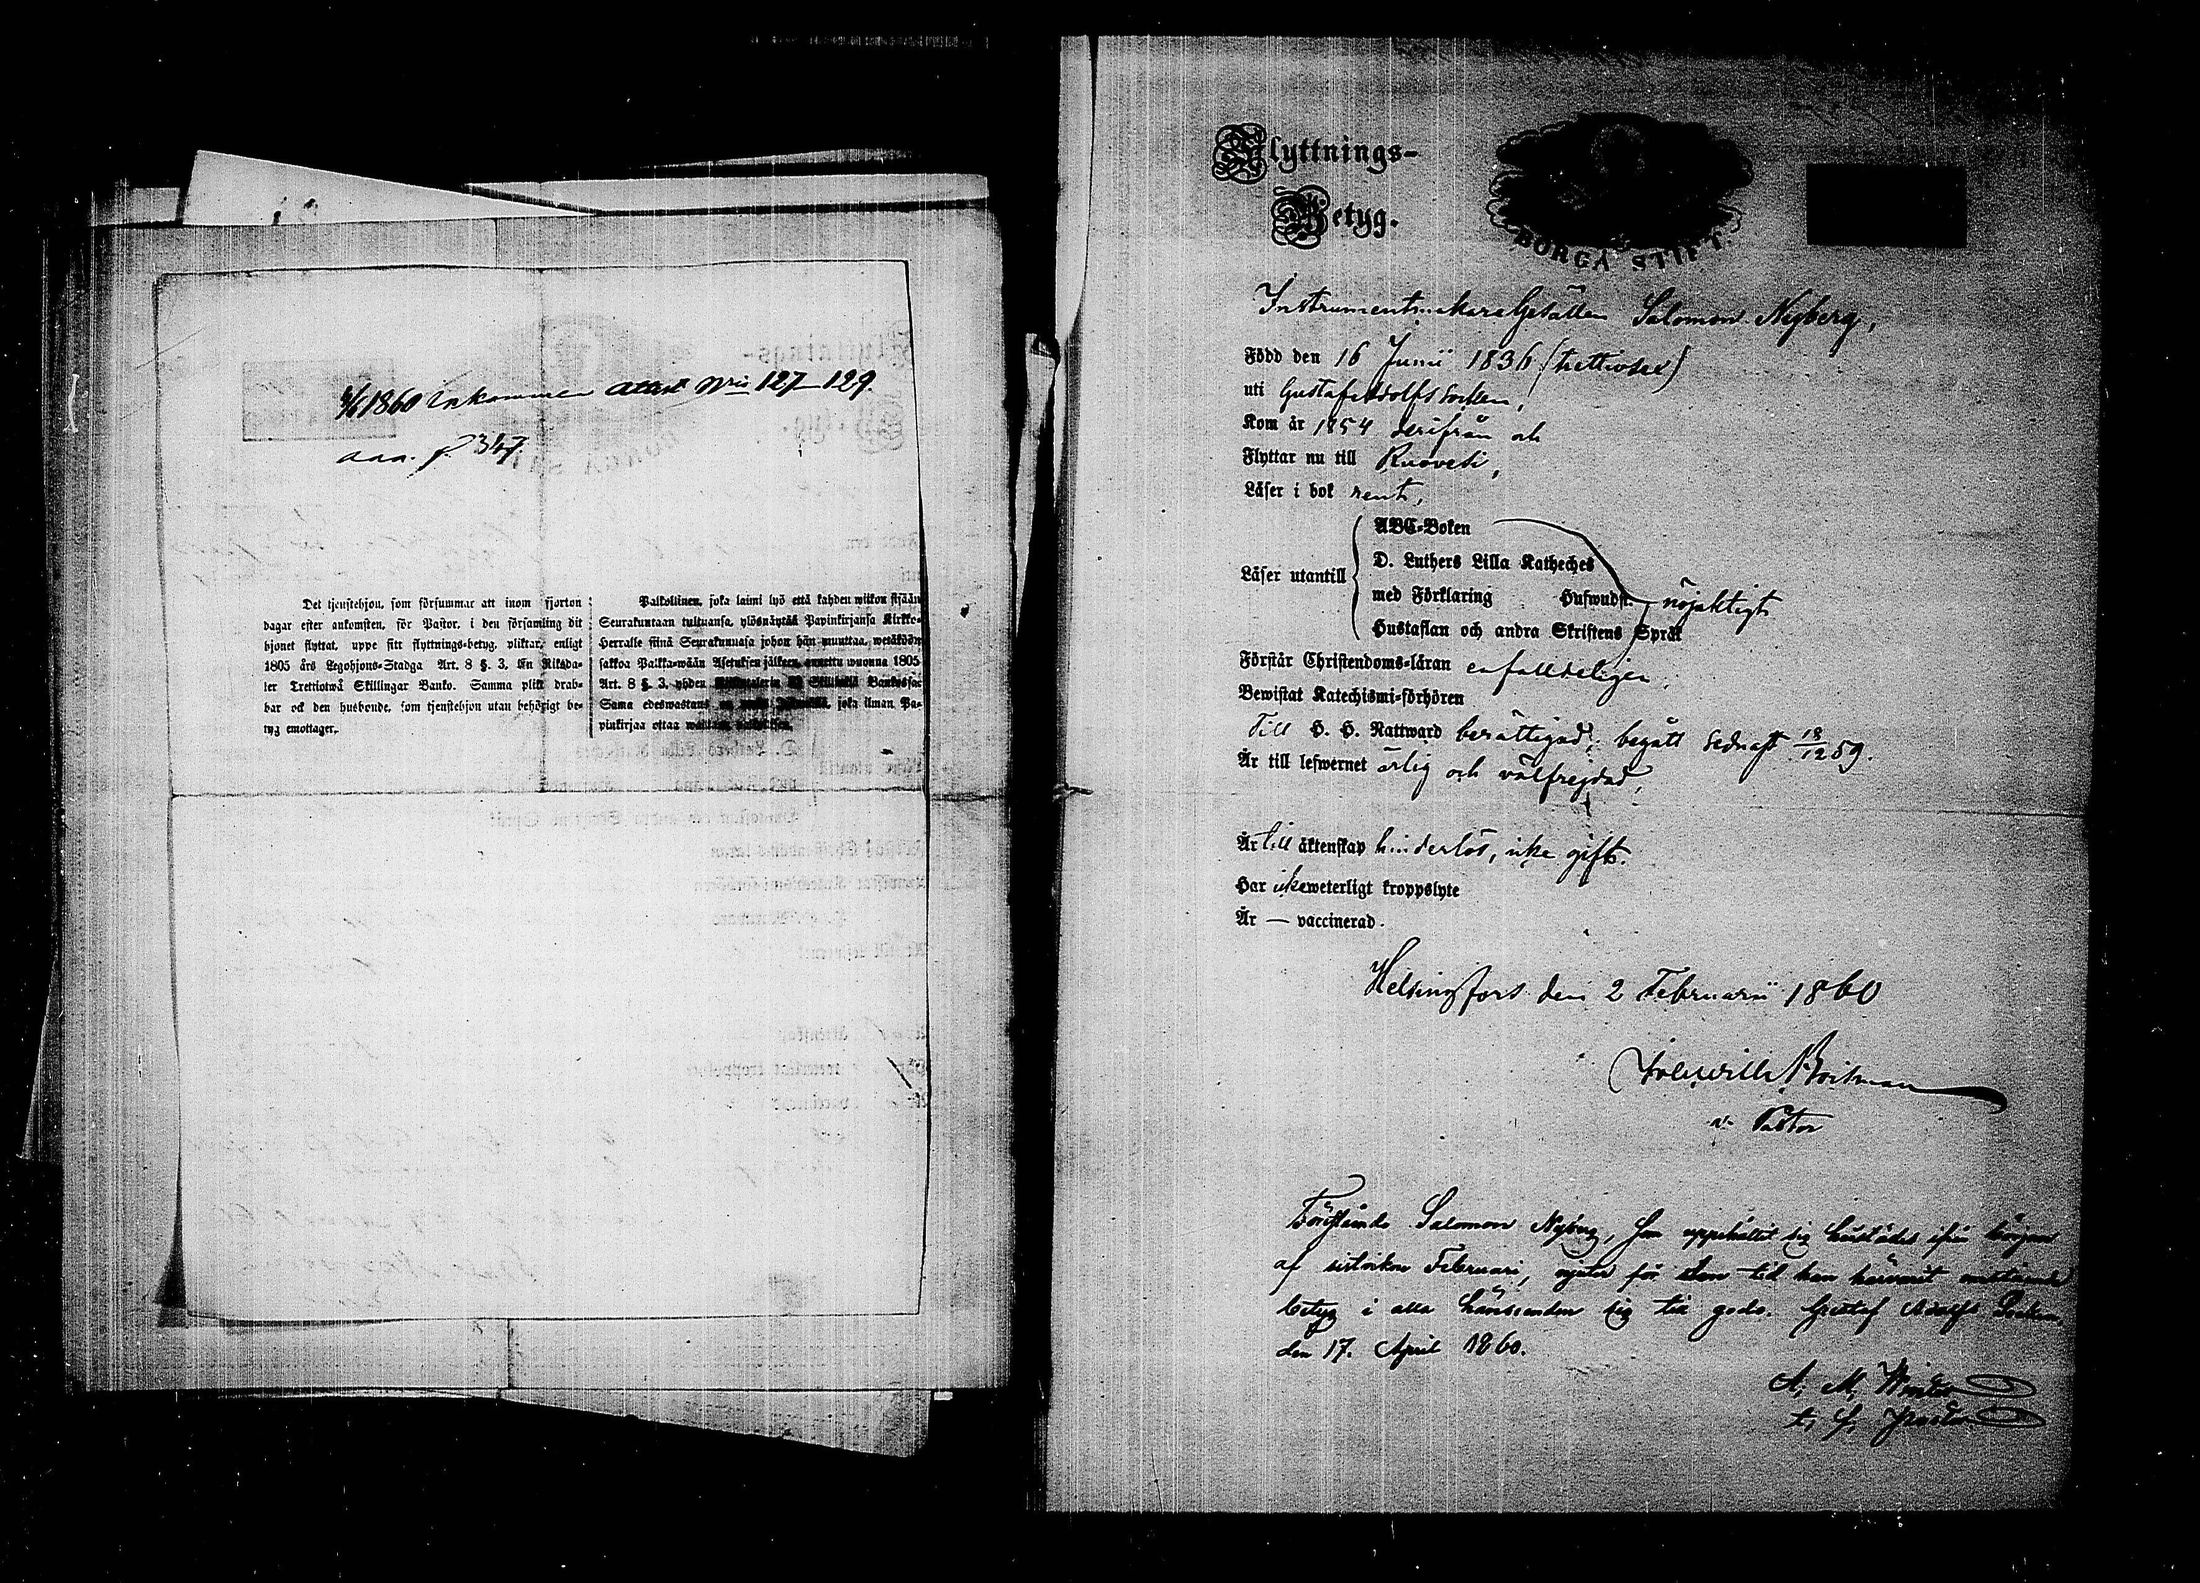 1860 Inkommen attest Nris 127-129.
p 347.
Det tjenstehjon, som försummar att inom fjorton
dagar efter ankomsten, för Pastor, i den församling dit
hjonet flyttat, uppe sitt flyttnings-betyg, pliktar, enligt
1805 års Legohjons-Stadga Art. 8 §. 3, En Riksda-
ler Trettiotwå Skillingar Banko. Samma plikt drab-
bar ock den husbonde, som tjenstehjon utan behörigt be-
tyg emottager.
Palkollinen, joka laimi lyö että kahden wiikon sisään
Seurakuntaan tultuansa, ylösnäyttää Papinkirjansa Kirkko-
Herralle siinä Seurakunnasa johon hän muuttaa, wetäköön
sakkoa Palkka-wään Asetuksen jälkeen, annettu wuonna 1805
Art. 8 §. 3. yhden
Sama edeswastaus joka ilman Pa-
pinkirjaa ottaa
Flyttnings-
Betyg.
BORGÅ STIFT.
Instrumentmakare Gesällen Salomon Nyberg,
Född den 16 Junii 1836 (trettiosex)
uti Gustaf Adolfs Socken,
Kom år 1854 derifrån och
Flyttar nu till Ruovesi,
Läser i bok rent,
ABC-Boken
D. Luthers Lilla Katheches
Läser utantill
med Förklaring Hufwudst. nöjaktigt
Hustaflan och andra Skriftens Språk
Förstår Christendoms-läran enfaldeligen
Bewistat Katechismi-förhören
Till H. H. Nattward berättigad, begått sednast 18/12 59.
Är till lefwernet ärlig och välfrejdad,
Är till äktenskap hinderlös, icke gift.
Har icke weterligt kroppslyte
Är — vaccinerad.
Helsingfors den 2 Februarii 1860
v. Pastor
Förestående Salomon Nyberg, som uppehållit sig härstädes ifrån början
af sistvikne Februari, njuter för den tid han härvarit
betyg i alla hänseenden sig till godo. Gustaf Adolfs Socken,
den 17. April 1860.
A. M.
t. f. Pastor